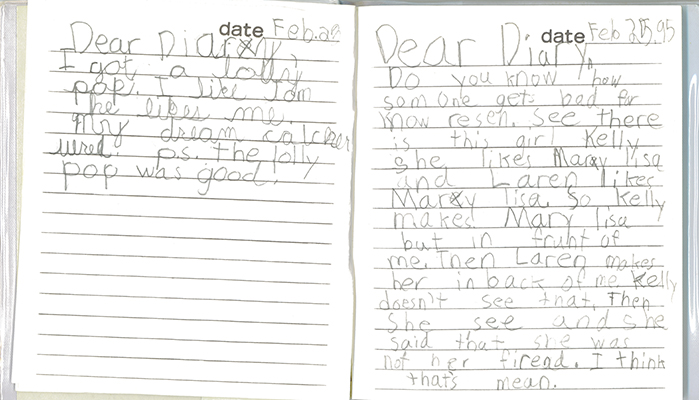 date
Dear Diary,
I got a lolly
pop. I like Tom
he likes me.
My dream catcher
ps. the lolly
pop was good.
date Feb 25,95
Dear Diary,
Do you know how
som one gets bad for
know resen. See there
is this girl Kelly
she likes Mary lisa
and Laren likes
Mary lisa. So Kelly
makes Mary lisa
but in frunt of
me. Then Laren makes
her in back of me. Kelly
doesn't see that. Then
She see and she
said that she was
not her firend. I think
that's mean.